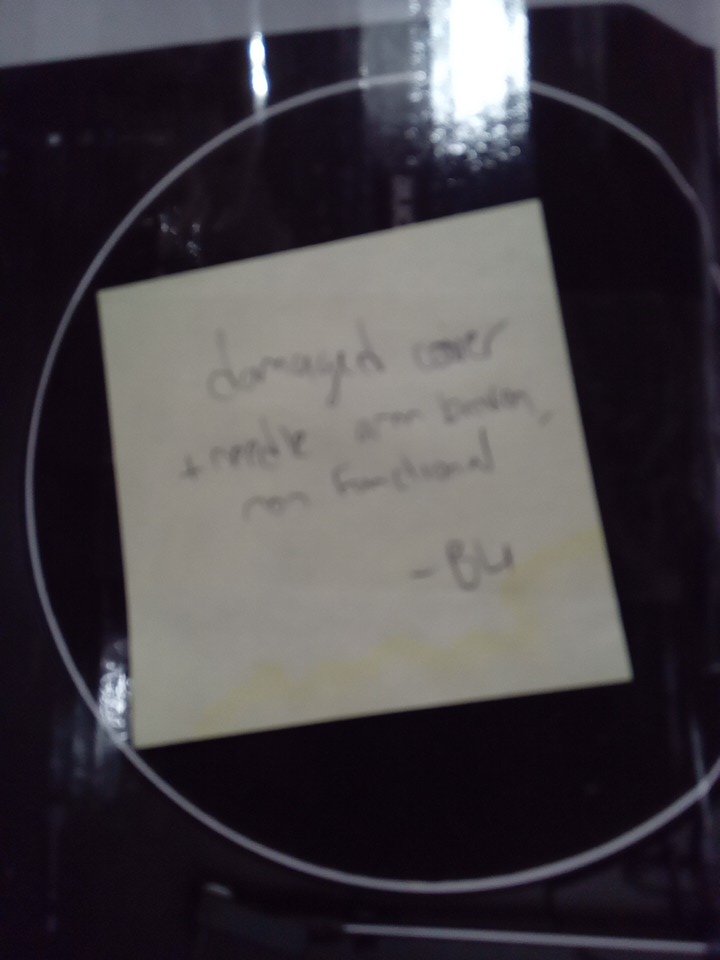 damaged cover
+ needle arm broken,
non functional
- BH